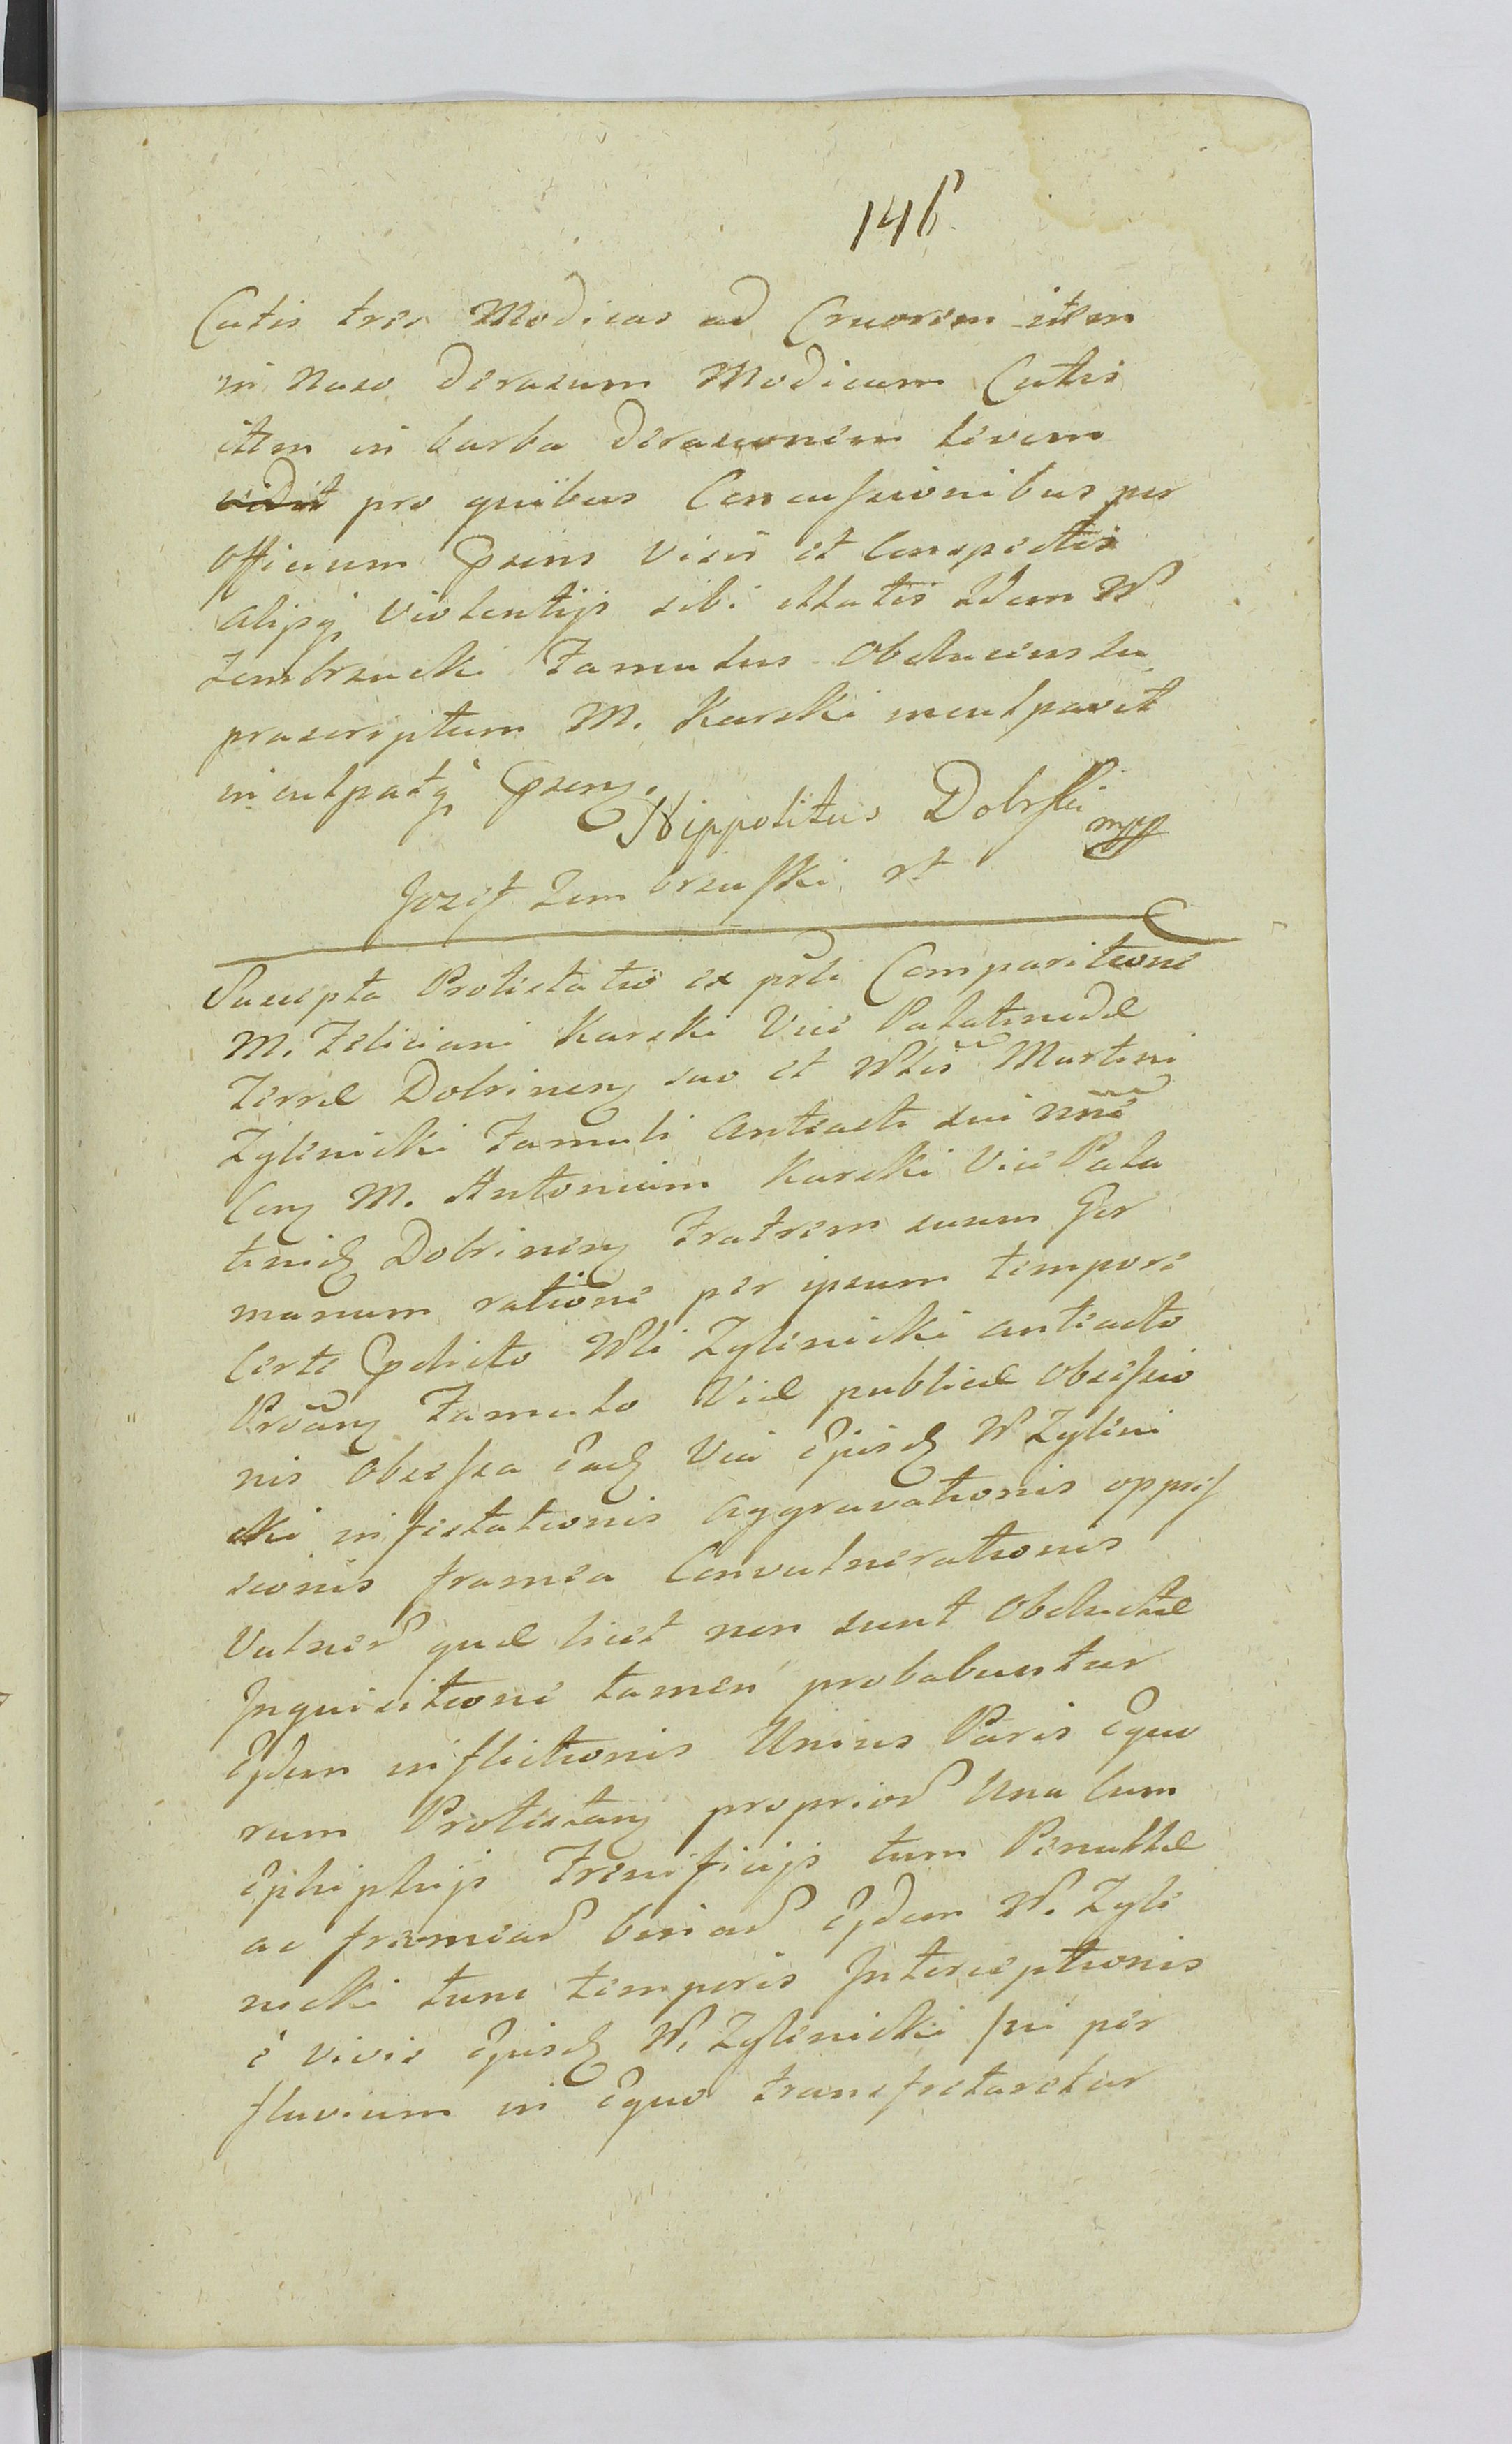 146
Cutis tres Modicas ad Cruorem item
in Naso Derasum Modicum Cutis
item in barba Derasionem levem
vidit pro quibus Concussionibus per
Officium Psens Visis et Conspectis
alijsq3 Violentijs sibi illatis Idem W
Zembrzucki Famulus Obducens su
prascriptum M. Karski inculpavit
inculpatq3 Psens.
Hippolitus Dobrski mpp
Jozef Zembrzuski rt
Suscepta Protestatio ex psli Comparitione
M. Feliciani Karski Vice Palatinidæ
Terræ Dobrinens suo et Wlis Martini
Zylenicki Famuli anteacti sui nne
Con M. Antonium Karski Vice Pala
tinid Dobrinens Fratrem suum Ger
manum ratione per ipsum tempore
Certe Pdicto Wli Zylinicki anteacto
Famulo Viæ publicæ Obsessio
nis Obsessa Ead Via Ejusd W Zyleni
cki infestationis aggravationis oppres
sionis framea Convulnerationis
Vulner quæ licet non sunt Obductæ
Inquisitione tamen probabuntur
Ejdem inflictionis Unius Paris Equo
rum Protestans proprior Una Cum
Ephiphijs Frenificijs tum Penullæ
ac framear binar Ejdem W. Zyle
nicki tunc temporis Interceptionis
e vivis Ejusd W. Zylenicki sui per
fluvium in Equo transfretaretur